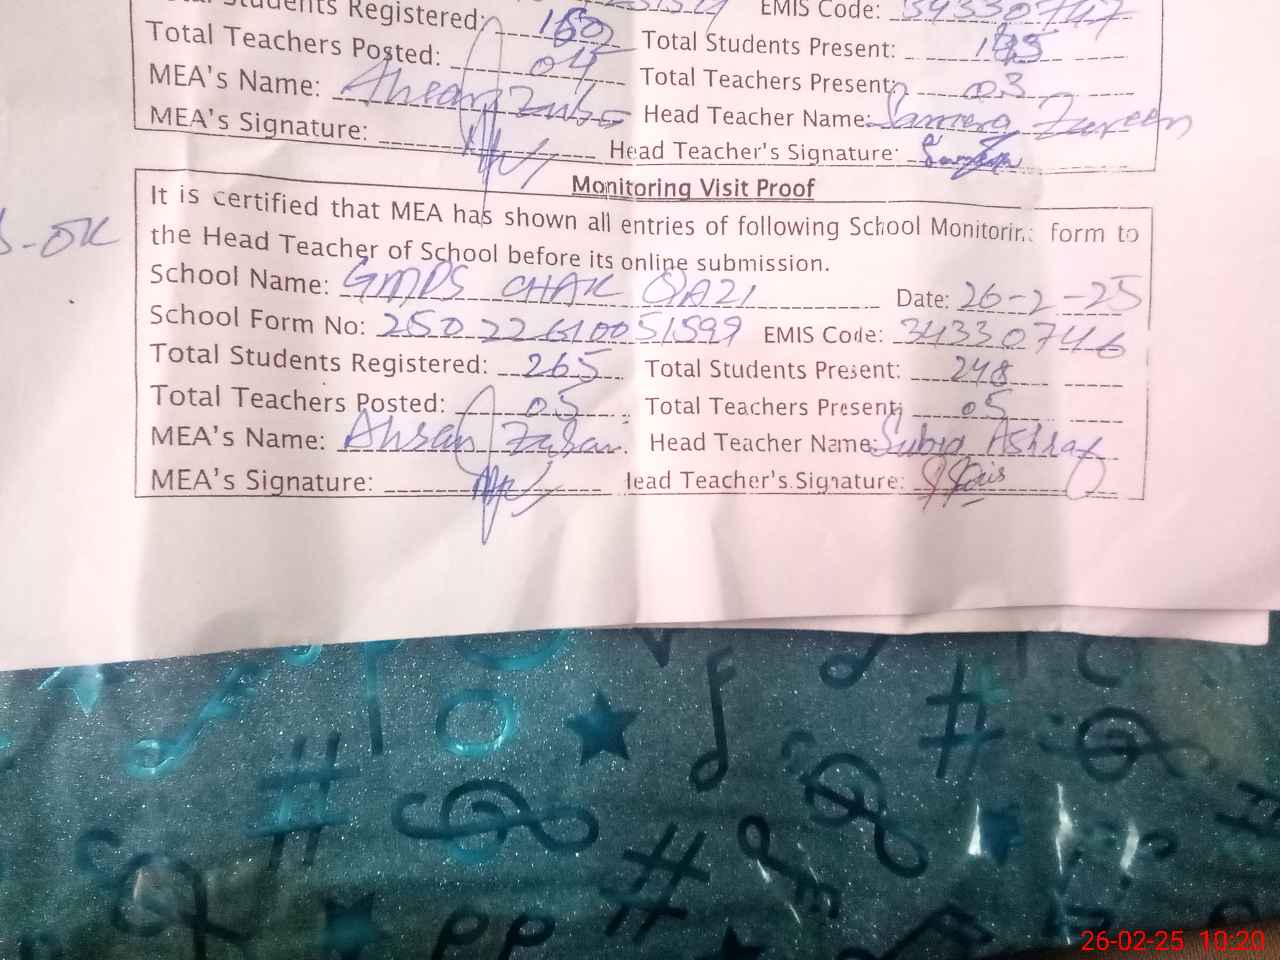 Students Registered: 160 EMIS Code: 34330747
Total Teachers Posted: 04 Total Students Present: 145
MEA's Name: Ahsan Total Teachers Present: 03
MEA's Signature: Head Teacher Name:
Head Teacher's Signature:
Monitoring Visit Proof
It is certified that MEA has shown all entries of following School Monitoring form to
the Head Teacher of School before its online submission.
School Name: GMPS CHAK QAZI Date: 26-2-25
School Form No: 25022610051599 EMIS Code: 34330746
Total Students Registered: 265 Total Students Present: 248
Total Teachers Posted: 05 Total Teachers Present: 05
MEA's Name: Ahsan Head Teacher Name: Ashraf
MEA's Signature: Head Teacher's Signature:
-OK
26-02-25 10:20